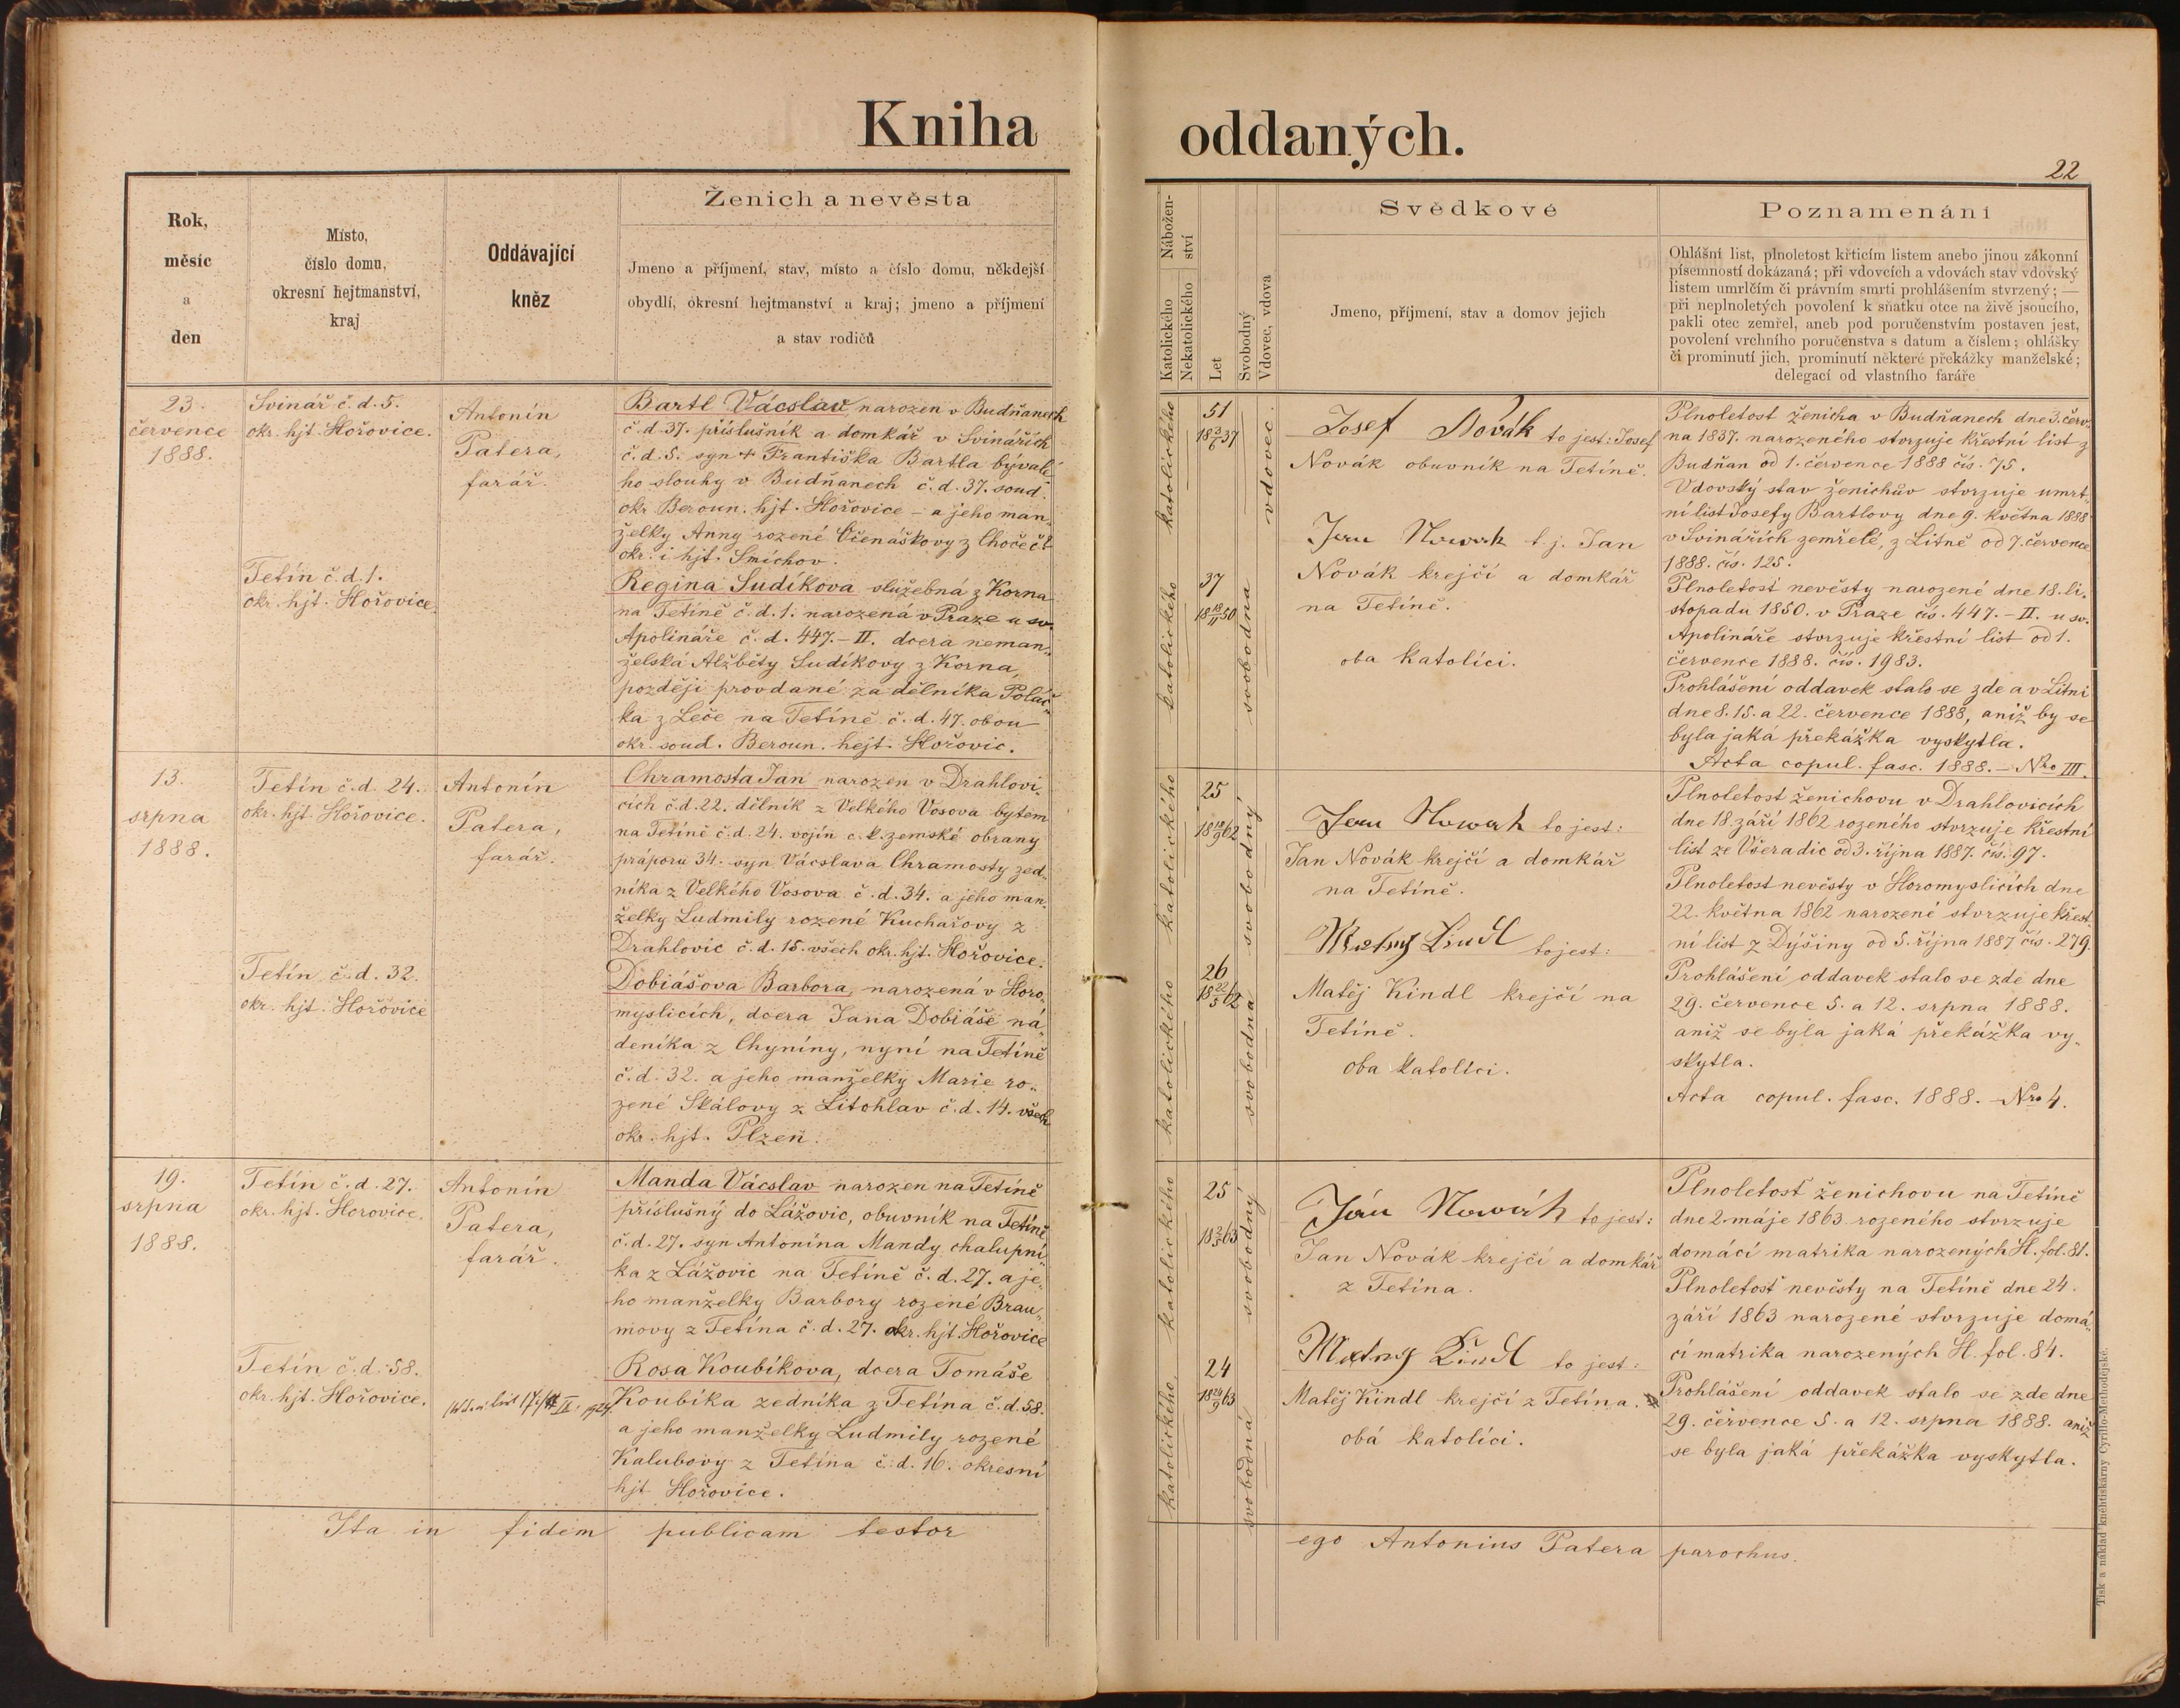 Kniha oddaných.
22
Rok,
měsíc
a
den
Místo,
číslo domu,
okresní hejtmanství,
kraj
Oddávající
kněz
Ženich a nevěsta
Jmeno a příjmení, stav, místo a číslo domu, někdejší
obydlí, okresní hejtmanství a kraj; jmeno a příjmení
a stav rodičů
Nábožen-
ství
Katolického
Nekatolického
Let
Svobodný
Vdovec, vdova
Svědkové
Jmeno, příjmení, stav a domov jejich
Poznamenání
Ohlášní list, plnoletost křticím listem anebo jinou zákonní
písemností dokázaná; při vdovcích a vdovách stav vdovský
listem umrlčím či právním smrti prohlášením stvrzený; —
při neplnoletých povolení k sňatku otce na živě jsoucího,
pakli otec zemřel, aneb pod poručenstvím postaven jest,
povolení vrchního poručenstva s datum a číslem; ohlášky
či prominutí jich, prominutí některé překážky manželské;
delegací od vlastního faráře
23.
července
1888.
Svinář č. d. 5.
okr. hjt. Hořovice.
Tetín č. d. 1.
okr. hjt. Hořovice.
Antonín
Patera,
farář.
Bartl Vácslav narozen v Budňanech
č. d. 37. příslušník a domkář v Svinářích
č. d. 5. syn + Františka Bartla býval.
ho slouhy v Budňanech č. d. 37. soud.
okr. Beroun. hjt. Hořovice – a jeho man„
želky Anny rozené Včenáškovy z
okr. i hjt. Smíchov.
Regina Sudíkova služebná z Korna
na Tetíně č. d. 1. narozená v Praze u sv.
Apolináře č. d. 447.–II. dcera neman„
želská Alžběty Sudíkovy z Korna,
později provdané za dělníka Poláč„
ka z Leče na Tetíně č. d. 47. obou
okr. soud. Beroun. hejt. Hořovic.
katolického
51
18 3/6 37
vdovec.
katolického
37
18 18/11 50
svobodna
Josef Novák to jest: Josef
Novák obuvník na Tetíně.
Jan Nowak t. j. Jan
Novák krejčí a domkář
na Tetíně.
oba katolíci.
Plnoletost ženicha v Budňanech dne 3. červ„
na 1837. narozeného stvrzuje křestní list z
Budňan od 1. července 1888 čís. 75.
Vdovský stav ženichův stvrzuje umrt„
ní list Josefy Bartlovy dne 9. května 1888
v Svinářích zemřelé, z Litně od 7. července
1888. čís. 125.
Plnoletosť nevěsty narozené dne 18. li„
stopadu 1850. v Praze čís. 447.–II. u sv.
Apolináře stvrzuje křestní list od 1.
července 1888. čís. 1983.
Prohlášení oddavek stalo se zde a v Litni
dne 8. 15. a 22. července 1888, aniž by se
byla jaká překážka vyskytla.
Acta copul. fasc. 1888. – Nro III.
13.
srpna
1888.
Tetín č. d. 24.
okr. hjt. Hořovice.
Tetín č. d. 32.
okr. hjt. Hořovice
Antonín
Patera,
farář.
Chramosta Jan narozen v Drahlovi„
cích č. d. 22. dělník z Velkého Vosova bytem
na Tetíně č. d. 24. vojín c. k. zemské obrany
práporu 34. syn Vácslava Chramosty zed„
níka z Velkého Vosova č. d. 34. a jeho man„
želky Ludmily rozené Kuchařovy z
Drahlovic č. d. 15. všech okr. hjt. Hořovice.
Dobiášova Barbora, narozená v Horo„
myslicích, dcera Jana Dobiáše ná„
deníka z Chyníny, nyní na Tetíně
č. d. 32. a jeho manželky Marie ro„
zené Skálovy z Litohlav č. d. 14. všech
okr. hjt. Plzeň.
katolického
25
18 18/9 62
svobodný
katolického
26
18 22/5 62
svobodna
Jan Nowak to jest:
Jan Novák krejčí a domkář
na Tetíně.
Matěj Kindl to jest:
Matěj Kindl krejčí na
Tetíně.
oba katolíci.
Plnoletost ženichovu v Drahlovicích
dne 18. září 1862 rozeného stvrzuje křestní
list ze Všeradic od 3. října 1887. čís. 97.
Plnoletost nevěsty v Horomyslicích dne
22. května 1862 narozené stvrzuje křest„
ní list z Dýšiny od 5. října 1887 čís. 279.
Prohlášení oddavek stalo se zde dne
29. července 5. a 12. srpna 1888.
aniž se byla jaká překážka vy„
skytla.
Acta copul. fasc. 1888. – Nro 4.
19.
srpna
1888.
Tetín č. d. 27.
okr. hjt. Horovice.
Tetín č. d. 58.
okr. hjt. Hořovice.
Antonín
Patera,
farář.
Manda Vácslav narozen na Tetíně
příslušný do Lážovic, obuvník na Tetíně
č. d. 27. syn Antonína Mandy chalupní„
ka z Lážovic na Tetíně č. d. 27. a je„
ho manželky Barbory rozené Brau„
movy z Tetína č. d. 27. okr. hjt. Hořovice
Rosa Koubíkova, dcera Tomáše
Koubíka zedníka z Tetína č. d. 58.
a jeho manželky Ludmily rozené
Kalubovy z Tetína č. d. 16. okresní
hjt Hořovice.
katolického
25
18 2/5 63
svobodný
katolického
24
18 24/9 63
svobodná
Ján Nowák to jest:
Jan Novák krejčí a domkář
z Tetína.
Matěj Kindl to jest:
Matěj Kindl krejčí z Tetína.
obá katolíci.
Plnoletosť ženichovu na Tetíně
dne 2. máje 1863 rozeného stvrzuje
domácí matrika narozených H. fol. 81.
Plnoletosť nevěsty na Tetíně dne 24.
září 1863 narozené stvrzuje domá„
cí matrika narozených H. fol. 84.
Prohlášení oddavek stalo se zde dne
29. července 5. a 12. srpna 1888. aniž
se byla jaká překážka vyskytla.
Ita in fidem publicam testor
ego Antonius Patera parochus.
Tisk a náklad knihtiskárny Cyrillo-Methodějské.